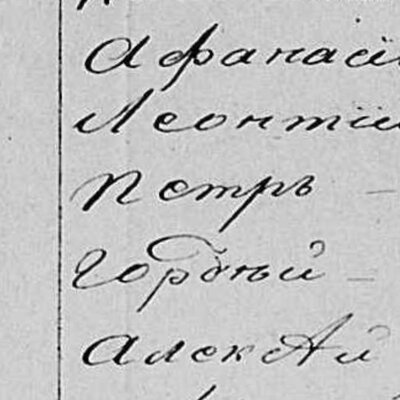 Афанасій
Леонтій
Петръ –
Гордѣй –
Алексѣй